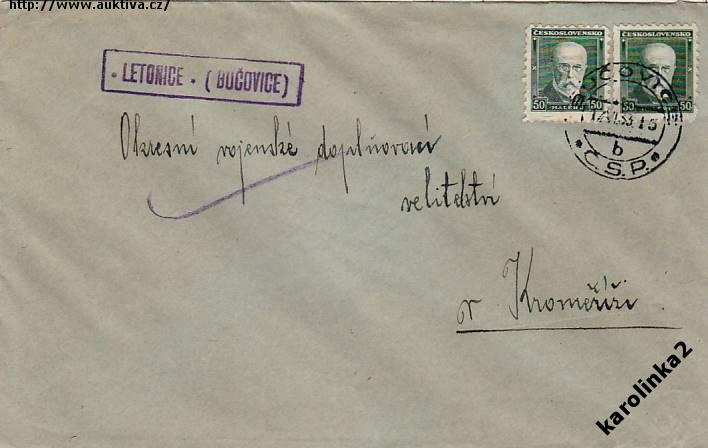 http://www.auktiva.cz/
ČESKOSLOVENSKO
ČESKOSLOVENSKO
50 HALÉŘŮ 50
50 50
• LETONICE • (BUČOVICE)
BUČOVICE
b
* Č.S.P. *
Okresní vojenské doplňovací
velitelství
v Kroměříži
karolinka2